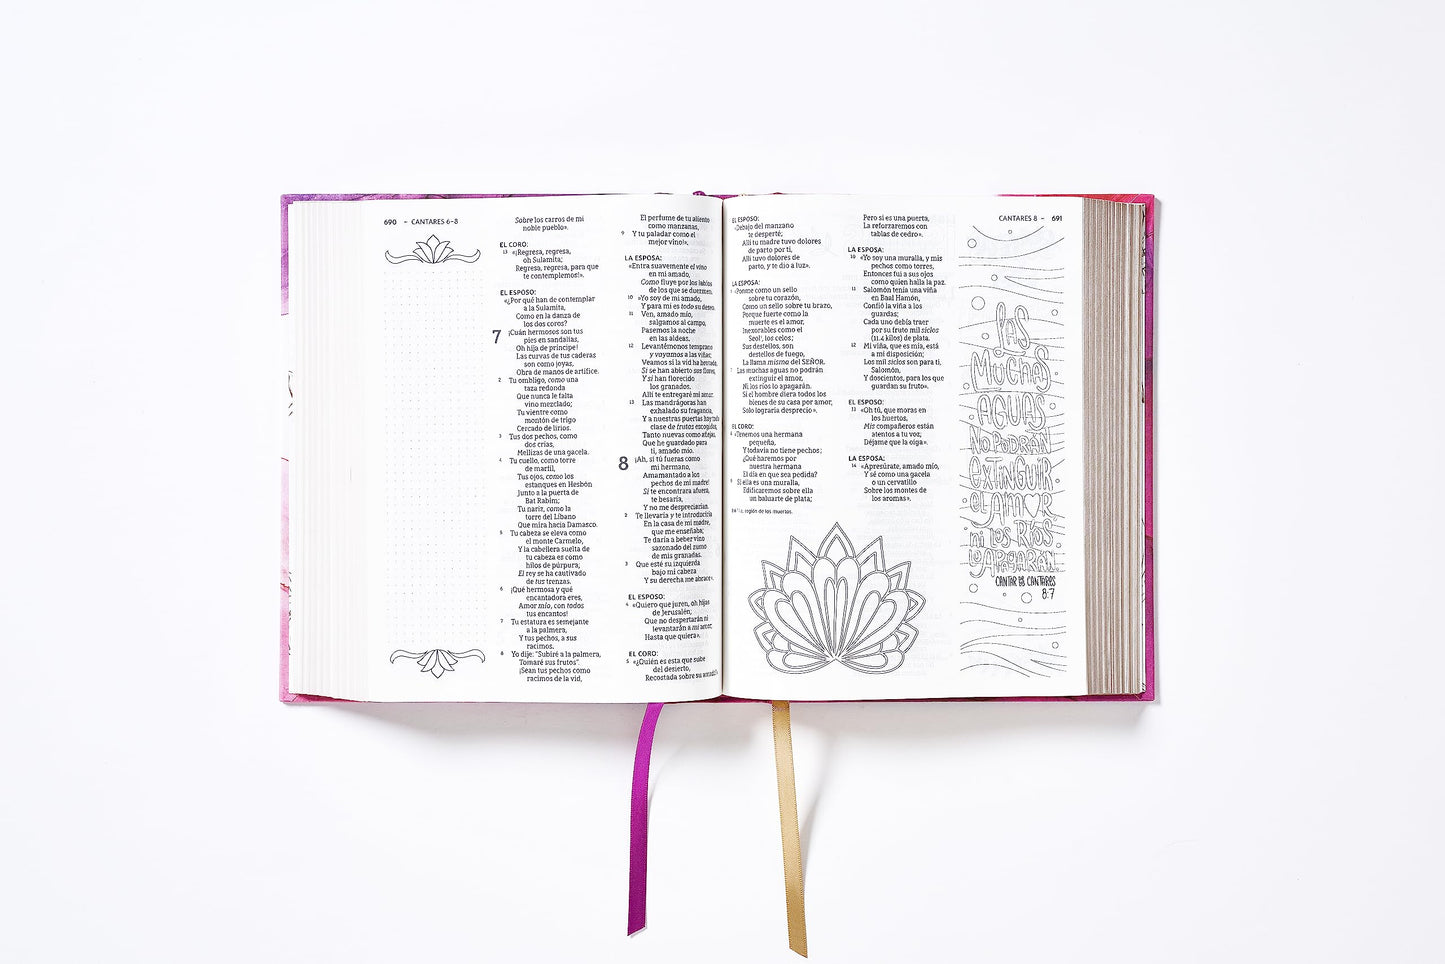 690 – CANTARES 6–8
Sobre los carros de mi
noble pueblo».
EL CORO:
13 «¡Regresa, regresa,
oh Sulamita;
Regresa, regresa, para que
te contemplemos!».
EL ESPOSO:
«¿Por qué han de contemplar
a la Sulamita,
Como en la danza de
los dos coros?
7 ¡Cuán hermosos son tus
pies en sandalias,
Oh hija de príncipe!
Las curvas de tus caderas
son como joyas,
Obra de manos de artífice.
2 Tu ombligo, como una
taza redonda
Que nunca le falta
vino mezclado;
Tu vientre como
montón de trigo
Cercado de lirios.
3 Tus dos pechos, como
dos crías,
Mellizas de una gacela.
4 Tu cuello, como torre
de marfil,
Tus ojos, como los
estanques en Hesbón
Junto a la puerta de
Bat Rabim;
Tu nariz, como la
torre del Líbano
Que mira hacia Damasco.
5 Tu cabeza se eleva como
el monte Carmelo,
Y la cabellera suelta de
tu cabeza es como
hilos de púrpura;
El rey se ha cautivado
de tus trenzas.
6 ¡Qué hermosa y qué
encantadora eres,
Amor mío, con todos
tus encantos!
7 Tu estatura es semejante
a la palmera,
Y tus pechos, a sus
racimos.
8 Yo dije: "Subiré a la palmera,
Tomaré sus frutos".
¡Sean tus pechos como
racimos de la vid,
El perfume de tu aliento
como manzanas,
9 Y tu paladar como el
mejor vino!»,
LA ESPOSA:
«Entra suavemente el vino
en mi amado,
Como fluye por los labios
de los que se duermen.
10 »Yo soy de mi amado,
Y para mí es todo su deseo.
11 Ven, amado mío,
salgamos al campo,
Pasemos la noche
en las aldeas.
12 Levantémonos temprano
y vayamos a las viñas;
Veamos si la vid ha brotado,
Si se han abierto sus flores,
Y si han florecido
los granados.
Allí te entregaré mi amor.
13 Las mandrágoras han
exhalado su fragancia,
Y a nuestras puertas hay toda
clase de frutos escogidos,
Tanto nuevas como añejas,
Que he guardado para
ti, amado mío.
8 ¡Ah, si tú fueras como
mi hermano,
Amamantado a los
pechos de mi madre!
Si te encontrara afuera,
te besaría,
Y no me despreciarían.
2 Te llevaría y te introduciría
En la casa de mi madre,
que me enseñaba;
Te daría a beber vino
sazonado del zumo
de mis granadas.
3 Que esté su izquierda
bajo mi cabeza
Y su derecha me abrace».
EL ESPOSO:
4 «Quiero que juren, oh hijas
de Jerusalén,
Que no despertarán ni
levantarán a mi amor,
Hasta que quiera».
EL CORO:
5 «¿Quién es esta que sube
del desierto,
Recostada sobre su amado?».
EL ESPOSO:
«Debajo del manzano
te desperté;
Allí tu madre tuvo dolores
de parto por ti,
Allí tuvo dolores de
parto, y te dio a luz».
LA ESPOSA:
6 «Ponme como un sello
sobre tu corazón,
Como un sello sobre tu brazo,
Porque fuerte como la
muerte es el amor,
Inexorables como el
Seol, los celos;
Sus destellos, son
destellos de fuego,
La llama misma del SEÑOR.
7 Las muchas aguas no podrán
extinguir el amor,
Ni los ríos lo apagarán.
Si el hombre diera todos los
bienes de su casa por amor,
Solo lograría desprecio».
EL CORO:
8 «Tenemos una hermana
pequeña,
Y todavía no tiene pechos;
¿Qué haremos por
nuestra hermana
El día en que sea pedida?
9 Si ella es una muralla,
Edificaremos sobre ella
un baluarte de plata;
región de los muertos.
Pero si es una puerta,
La reforzaremos con
tablas de cedro».
LA ESPOSA:
10 «Yo soy una muralla, y mis
pechos como torres,
Entonces fui a sus ojos
como quien halla la paz.
11 Salomón tenía una viña
en Baal Hamón,
Confió la viña a los
guardas;
Cada uno debía traer
por su fruto mil siclos
(11.4 kilos) de plata.
12 Mi viña, que es mía, está
a mi disposición;
Los mil siclos son para ti,
Salomón,
Y doscientos, para los que
guardan su fruto».
EL ESPOSO:
13 «Oh tú, que moras en
los huertos,
Mis compañeros están
atentos a tu voz;
Déjame que la oiga».
LA ESPOSA:
14 «Apresúrate, amado mío,
Y sé como una gacela
o un cervatillo
Sobre los montes de
los aromas».
CANTARES 8 – 691
LAS
MUCHAS
AGUAS
NO PODRÁN
EXTINGUIR
EL AMOR
NI LOS RÍOS
LO APAGARÁN.
CANTAR DE CANTARES
8:7